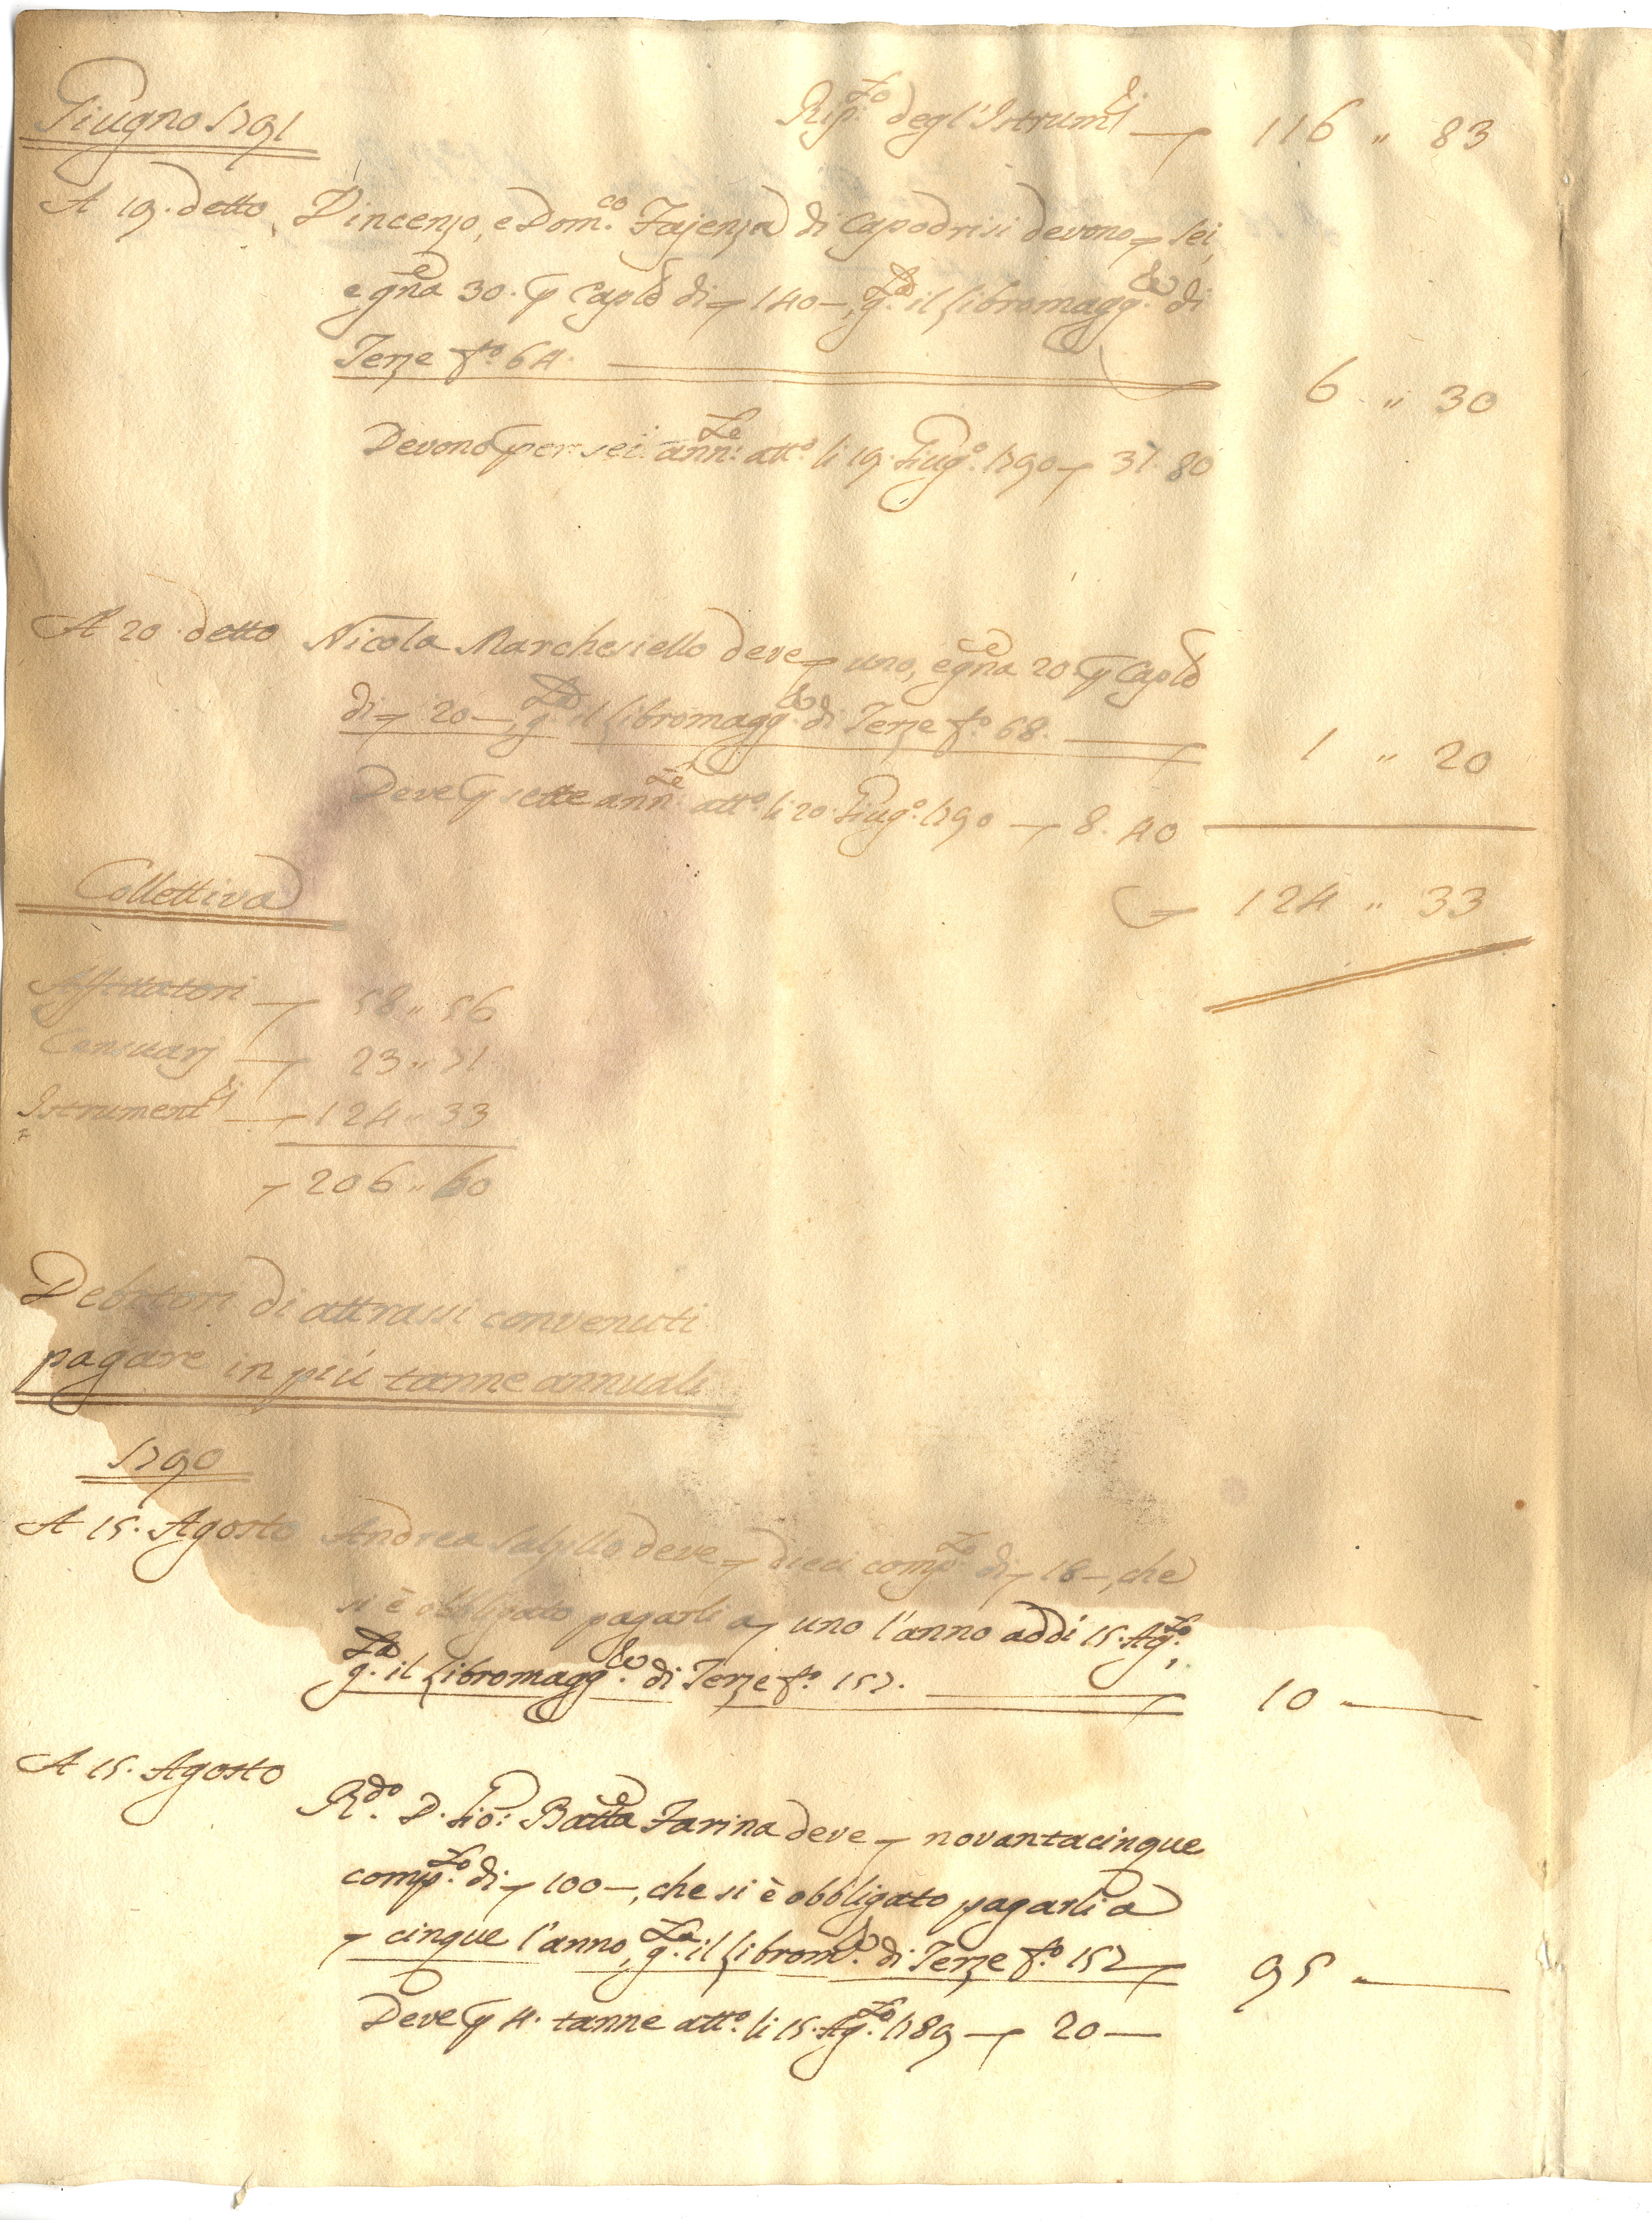 Giugno 1791
Rip.to degl'Istrum.ti — 116 „ 83
A 19. detto Vincenzo, e Dom.co Fajenza di Capodrisi devono sei,
e gna 30. p Caplé di 140—, g.ta il Libromagg.re di
Terze f.o 64. 6 „ 30
Devono per sei ann.te att.o li 19. Giug.o 1790 37. 80
A 20 detto Nicola Marchesiello deve uno, e gna 20 p Caplé
di 20—, g.ta il Libromagg.re di Terze f.o 68. 1 „ 20
Deve p sette ann.te att.o li 20. Giug.o 1790 — 8. 40
124 „ 33
Collettiva
Affittatori — 58 „ 56
Censuarj — 23 „ 71
Istrument.ti — 124 „ 33
206 „ 60
Debitori di attrassi convenuti
pagare in più tanne annuali
1790
A 15. Agosto Andrea Salzillo deve dieci comp.to di 18—, che
si è obbligato pagarli a uno l'anno addì 15. Ag.to,
g.ta il Libromagg.re di Terze f.o 157. 10 —
A 15. Agosto
R.do D. Gio: Batta Farina deve novantacinque
comp.to di 100—, che si è obbligato pagarli a
cinque l'anno, g.ta il Librom.re di Terze f.o 157 95 —
Deve p 4. tanne att.o li 15. Ag.to 1789 — 20 —